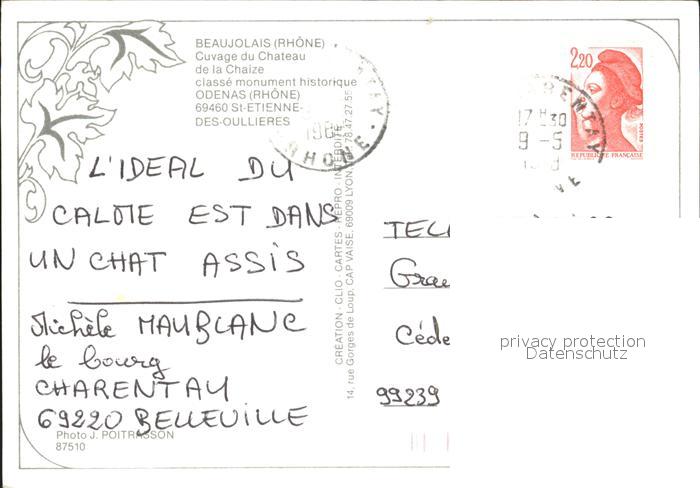 BEAUJOLAIS (RHÔNE)
Cuvage du Chateau
de la Chaize
classé monument historique
ODENAS (RHÔNE)
69460 St-ETIENNE-
DES-OULLIERES
2,20
POSTES
REPUBLIQUE FRANÇAISE
ARENTAY
17H30
9-5
NE
AY
198
RHONE
L'IDEAL DU
CALME EST DANS
UN CHAT ASSIS
Michèle MAUBLANC
le bourg
CHARENTAY
69220 BELLEVILLE
Photo J. POITRASSON
87510
CRÉATION - CLIO - CARTES - REPRO - INTERDITE
14, rue Gorges de Loup, CAP VAISE, 69009 LYON, 78.47.27.55
TEL
Gra
Céde
99239
privacy protection
Datenschutz